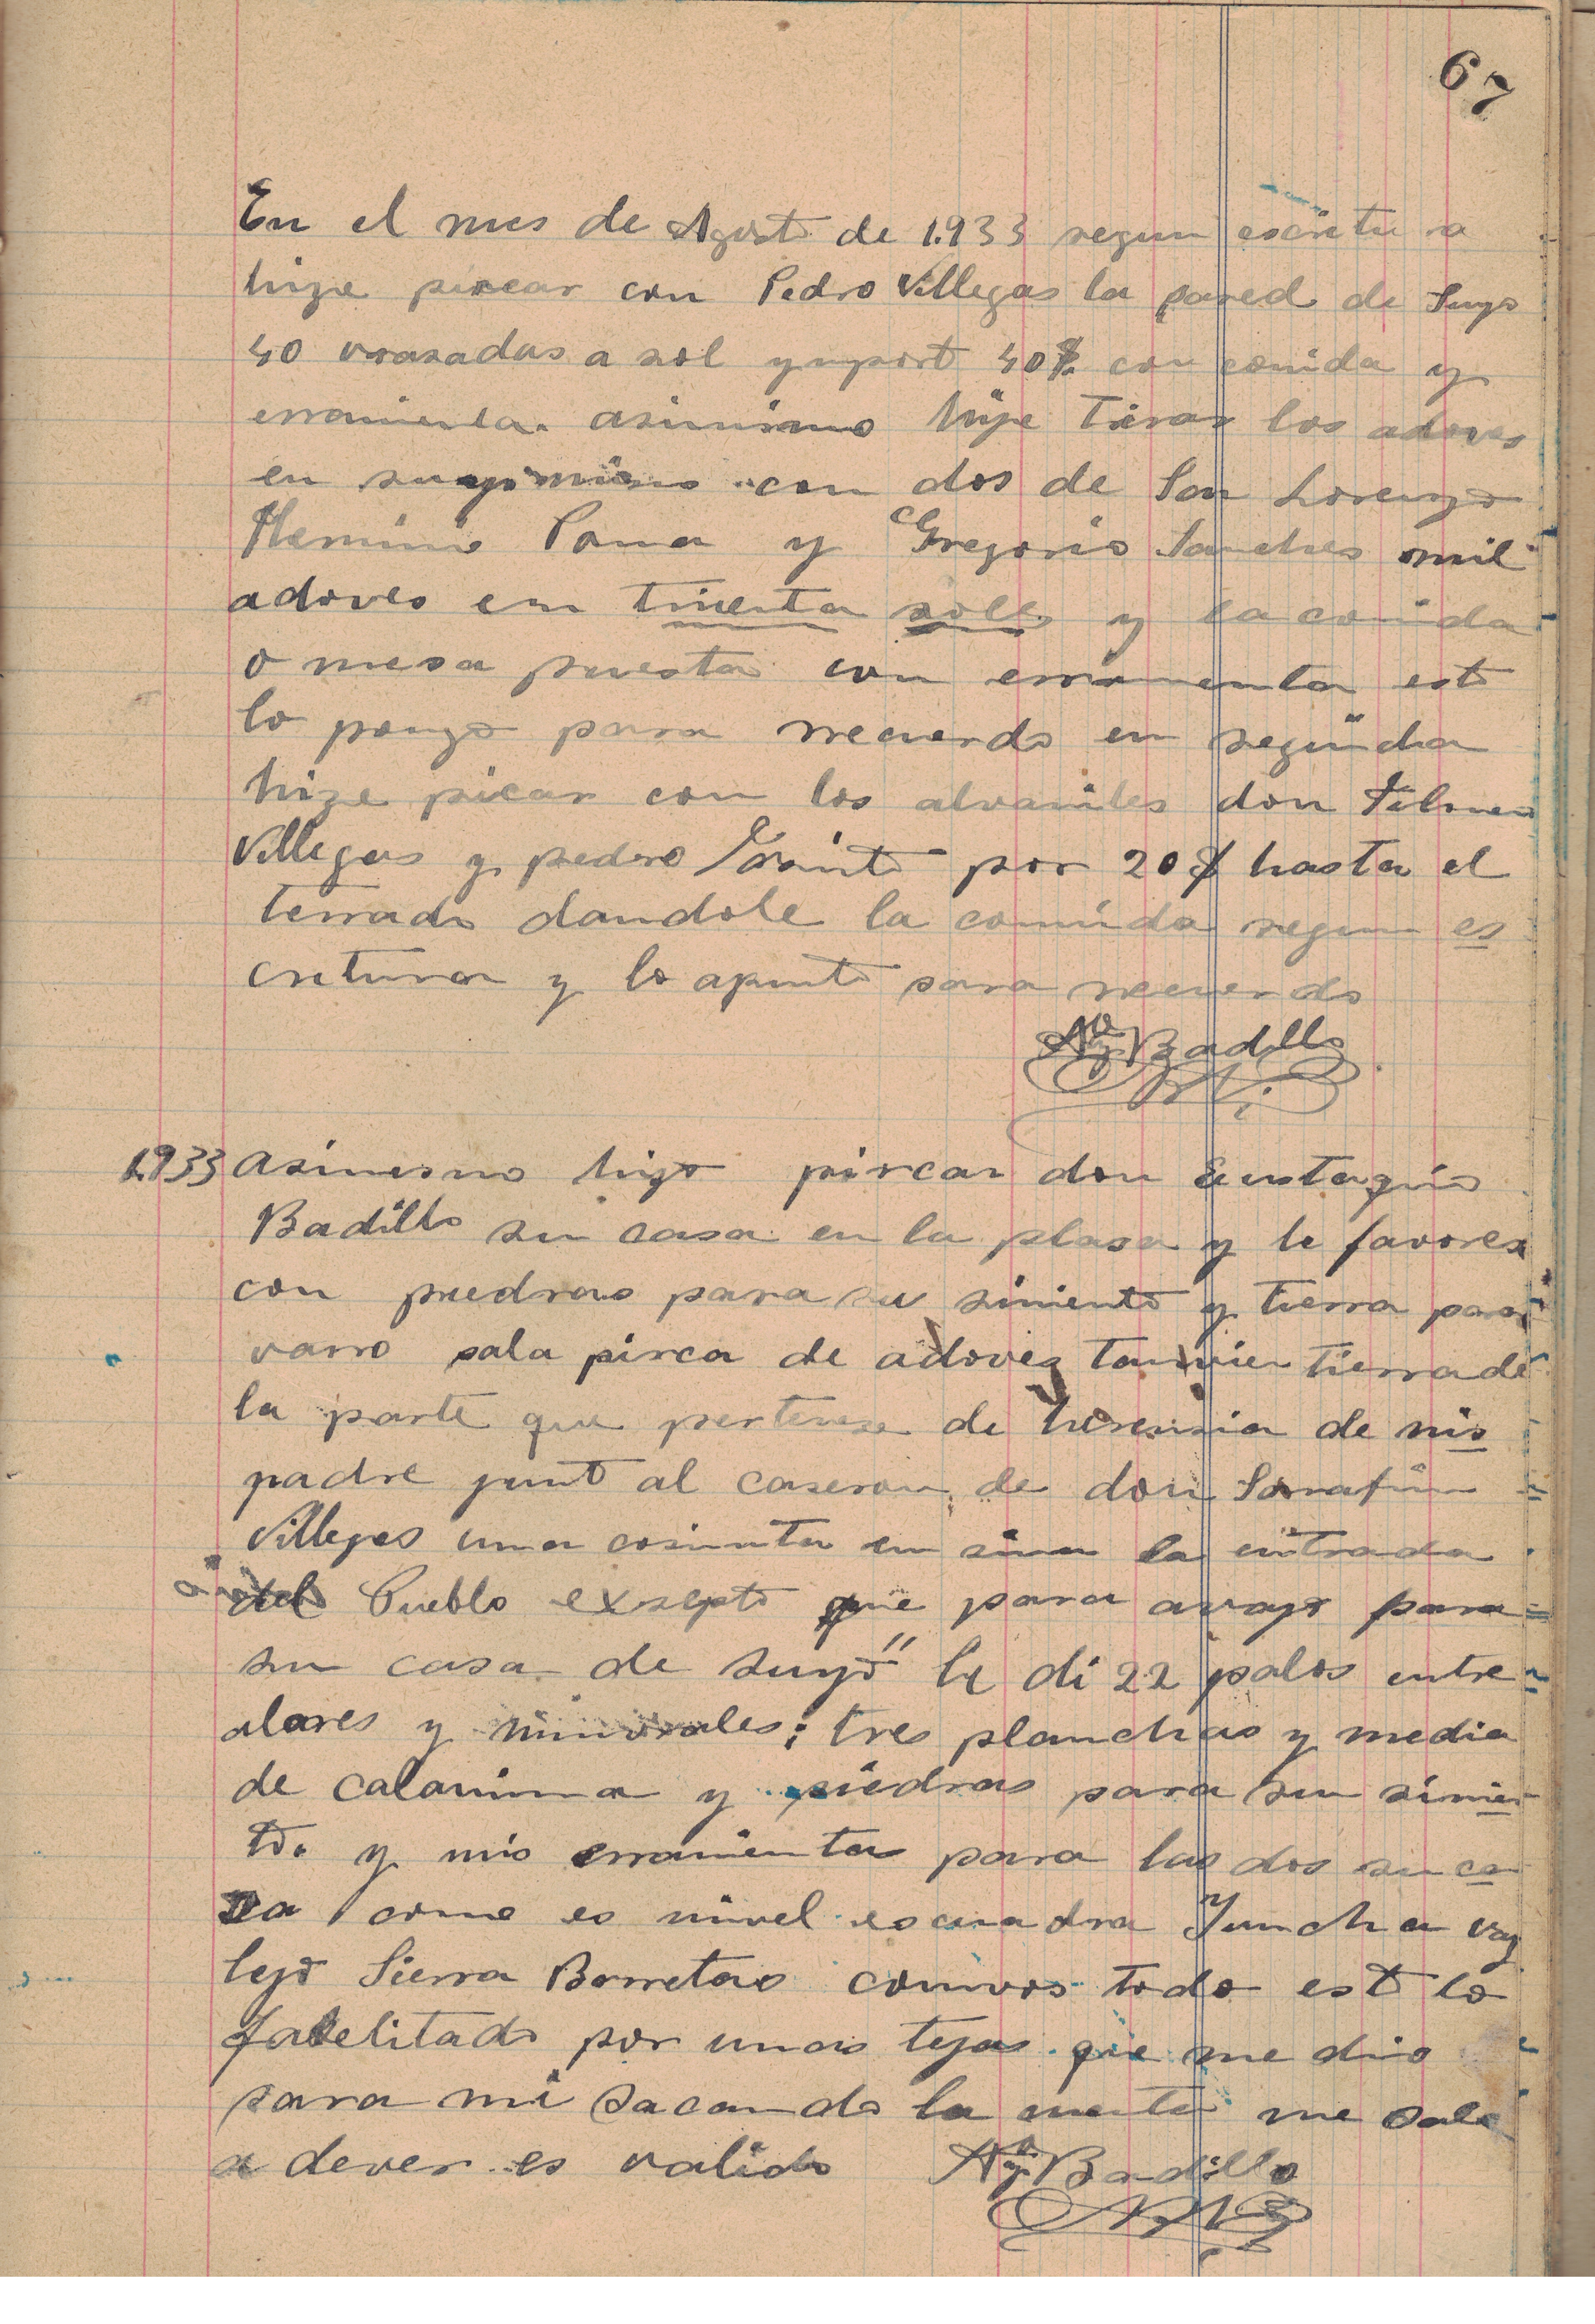 67
En el mes de Agosto de 1.933 segun escritura
hize pircar con Pedro Villegas la pared de Suyo
40 vrasadas a sol y import 40$ con comida y
erramienta. asimismo hize Tirar los adoves
en suyo mismo con dos de San Lorenzo
Herminio Poma y Gregorio Sanches mil
adoves en trienta soles y la comida
o mesa puesta con erramienta esto
lo pongo para recuerdo en seguida
hize picar con los alvaniles don Filomeno
Villegas y pedro por 20$ hasta el
terrado dandole la comida segun es
critura y lo apunto para recuerdo
Badillo
1.933 asimesmo hizo pircar don Eustaquio
Badillo su casa en la plasa y le favoresi
con piedras para su simiento y tierra para
varro pala pirca de adoves tanvien tierra de
la parte que pertenese de herensia de mis
padre junto al caseron de don Sarafin
Villegas una cosinita en sima la entrada
del Pueblo exsepto que para avajo para
su casa de suyo" le di 22 palos entre
alares y hunvrales; tres planchas y media
de calamina y piedras para su simien
to. y mis erramienta para las dos su ca
sa como es nivel escuadra Yuncha vay
lejo Sierra Barretas convos todo esto lo
faselitado por unas tejas que me dio
para mi sacando la cuenta me sale
a dever es valido Badillo